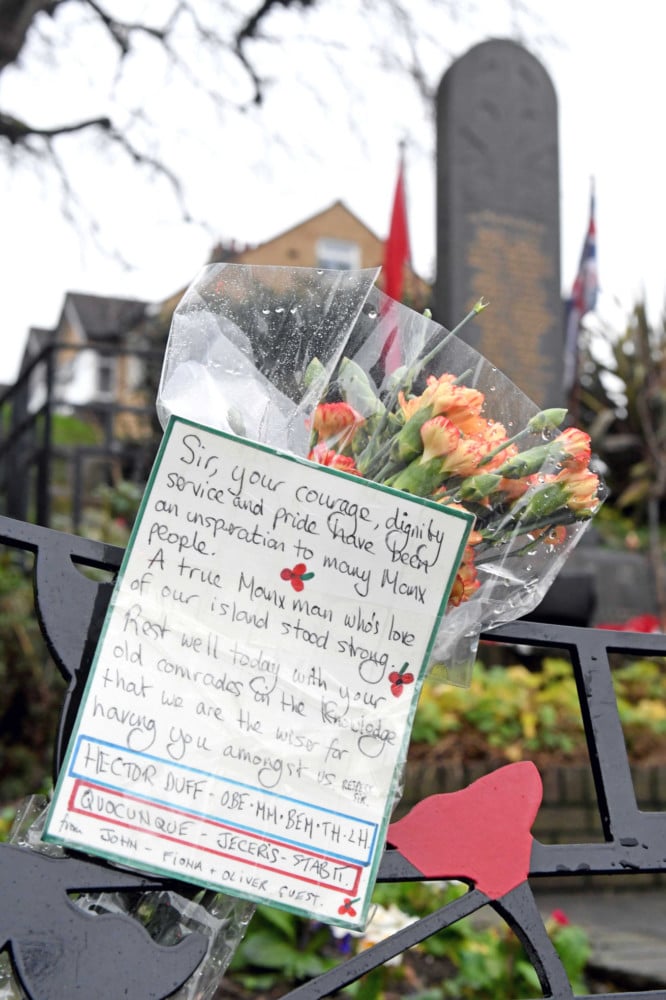 Sir, your courage, dignity
service and pride have been
an insperation to many Manx
people.
A true Manx man who's love
of our island stood strong.
Rest well today with your
old comrades in the knowledge
that we are the wiser for
having you amongst us. RESPECT
SIR.
HECTOR DUFF - OBE·MM·BEM·TH·LH.
QUOCUNQUE - JECERIS - STABIT.
from JOHN - FIONA + OLIVER GUEST.